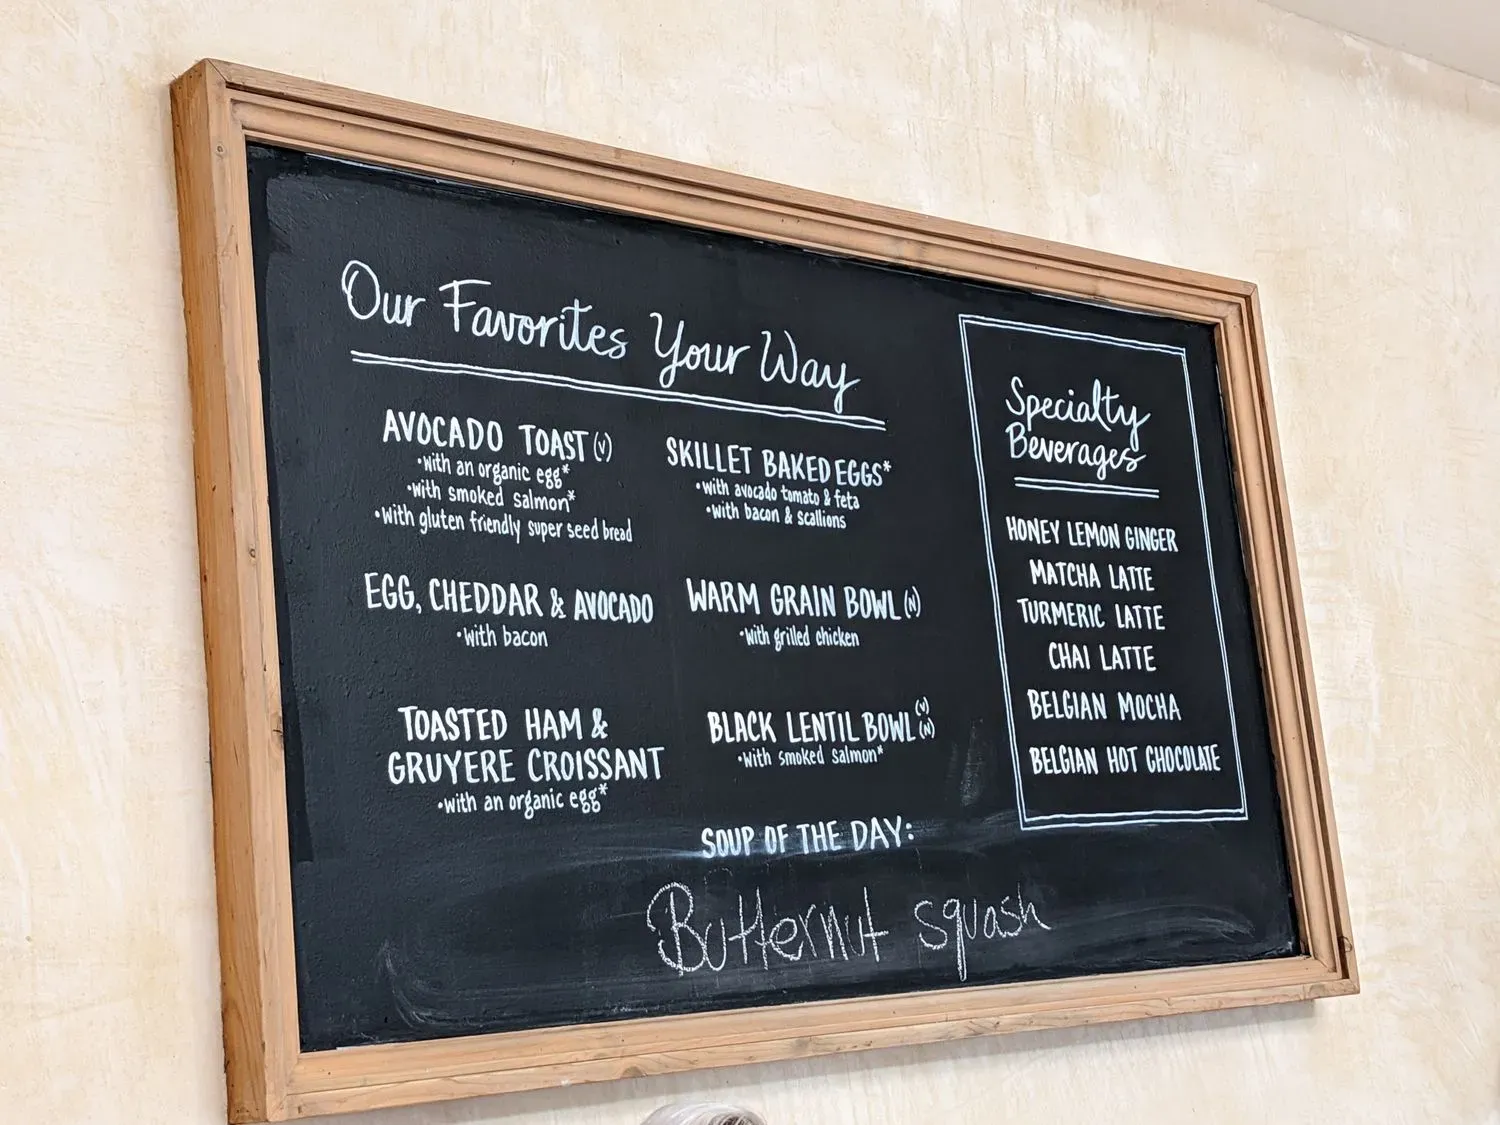 Our Favorites Your Way
AVOCADO TOAST (V)
•with an organic egg*
•with smoked salmon*
•with gluten friendly super seed bread
EGG, CHEDDAR & AVOCADO
•with bacon
TOASTED HAM &
GRUYERE CROISSANT
•with an organic egg*
SKILLET BAKED EGGS*
•with avocado tomato & feta
•with bacon & scallions
WARM GRAIN BOWL (N)
•with grilled chicken
BLACK LENTIL BOWL (V) (N)
•with smoked salmon*
SOUP OF THE DAY:
Butternut squash
Specialty
Beverages
HONEY LEMON GINGER
MATCHA LATTE
TURMERIC LATTE
CHAI LATTE
BELGIAN MOCHA
BELGIAN HOT CHOCOLATE